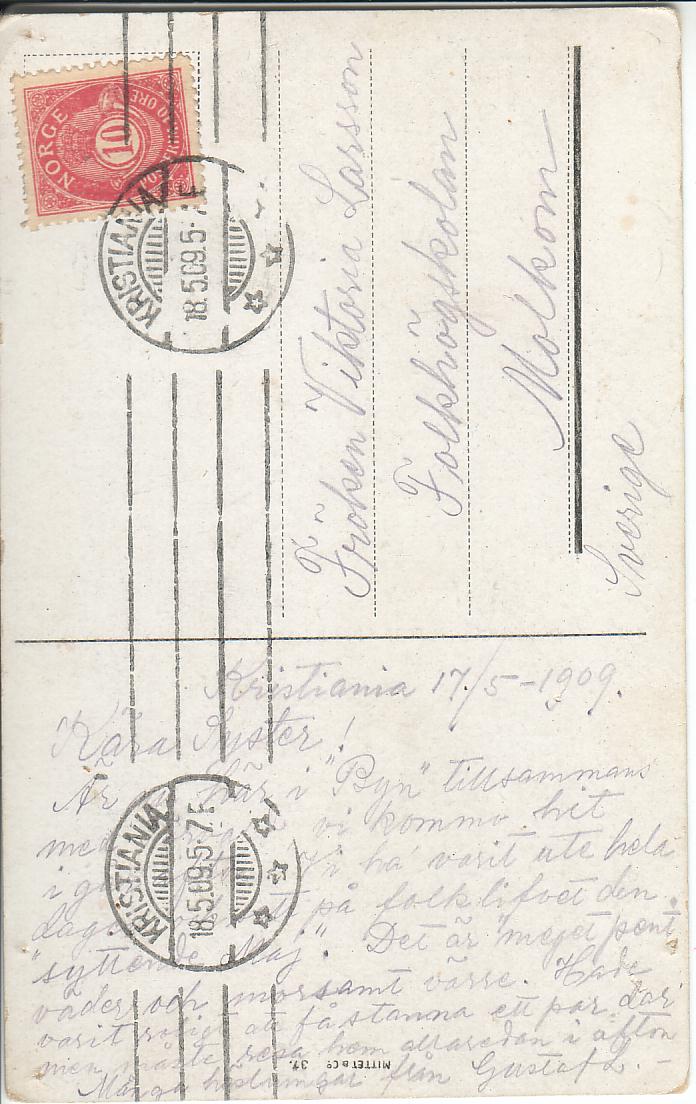 NORGE
10
KRISTIANIA
18.5.09.5-7 E
Fröken Viktoria Larsson
Folkhögskolan
Molkom
Sverige
Kristiania 17/5-1909.
Kära Syster!
Är här i "Byn" tillsammans
med vi kommo hit
i Vi ha varit ute hela
på folklifvet den
"syttende Maj". Det är "meget pent
väder och morsamt värre. Hade
varit roligt att få stanna ett par dar
men måste resa hem allaredan i afton
Många hälsningar från Gustaf L. -
KRISTIANIA
18.5.09.5-7 E
MITTET & Co. 37.